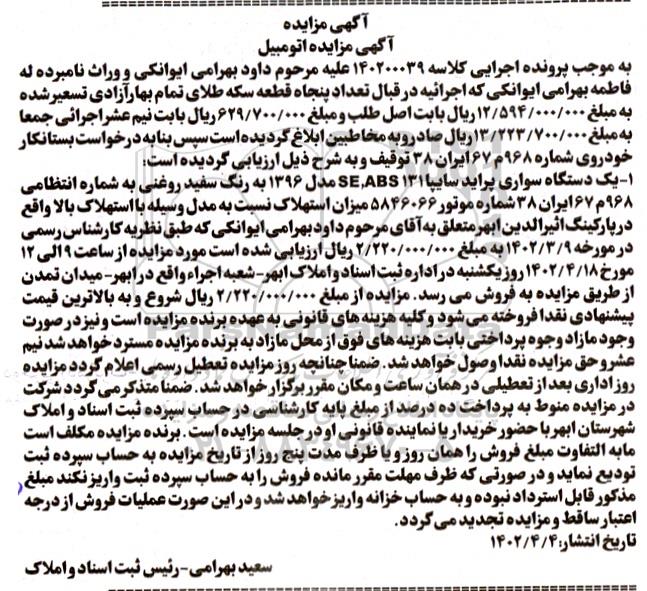 آگهی مزایده
آگهی مزایده اتومبیل
به موجب پرونده اجرایی کلاسه ۱۴۰۲۰۰۰۳۹ علیه مرحوم داود بهرامی ایوانکی و وراث نامبرده له
فاطمه بهرامی ایوانکی که اجرائیه در قبال تعداد پنجاه قطعه سکه طلای تمام بهار آزادی تسعیر شده
به مبلغ ۱۲/۵۹۴/۰۰۰/۰۰۰ ریال بابت اصل طلب و مبلغ ۶۲۹/۷۰۰/۰۰۰ ریال بابت نیم عشر اجرائی جمعا
به مبلغ ۱۳/۲۲۳/۷۰۰/۰۰۰ ریال صادر و به مخاطبین ابلاغ گردیده است سپس بنابه درخواست بستانکار
خودروی شماره ۹۶۸م۶۷ ایران ۳۸ توقیف و به شرح ذیل ارزیابی گردیده است:
۱-یک دستگاه سواری پراید سایپا ۱۳۱ SE,ABS مدل ۱۳۹۶ به رنگ سفید روغنی به شماره انتظامی
۹۶۸م۶۷ ایران ۳۸ شماره موتور ۵۸۴۶۰۶۶ میزان استهلاک نسبت به مدل وسیله با استهلاک بالا واقع
در پارکینگ اثیرالدین ابهر متعلق به آقای مرحوم داود بهرامی ایوانکی که طبق نظریه کارشناس رسمی
در مورخه ۱۴۰۲/۳/۹ به مبلغ ۲/۲۲۰/۰۰۰/۰۰۰ ریال ارزیابی شده است مورد مزایده از ساعت ۹ الی ۱۲
مورخ ۱۴۰۲/۴/۱۸ روز یکشنبه در اداره ثبت اسناد و املاک ابهر-شعبه اجراء واقع در ابهر-میدان تمدن
از طریق مزایده به فروش می رسد. مزایده از مبلغ ۲/۲۲۰/۰۰۰/۰۰۰ ریال شروع و به بالاترین قیمت
پیشنهادی نقدا فروخته می شود و کلیه هزینه های قانونی به عهده برنده مزایده است و نیز در صورت
وجود مازاد وجوه پرداختی بابت هزینه های فوق از محل مازاد به برنده مزایده مسترد خواهد شد نیم
عشر و حق مزایده نقدا وصول خواهد شد. ضمنا چنانچه روز مزایده تعطیل رسمی اعلام گردد مزایده
روز اداری بعد از تعطیلی در همان ساعت و مکان مقرر برگزار خواهد شد. ضمنا متذکر می گردد شرکت
در مزایده منوط به پرداخت ده درصد از مبلغ پایه کارشناسی در حساب سپرده ثبت اسناد و املاک
شهرستان ابهر با حضور خریدار یا نماینده قانونی او در جلسه مزایده است. برنده مزایده مکلف است
مابه التفاوت مبلغ فروش را همان روز و یا ظرف مدت پنج روز از تاریخ مزایده به حساب سپرده ثبت
تودیع نماید و در صورتی که ظرف مهلت مقرر مانده فروش را به حساب سپرده ثبت واریز نکند مبلغ
مذکور قابل استرداد نبوده و به حساب خزانه واریز خواهد شد و در این صورت عملیات فروش از درجه
اعتبار ساقط و مزایده تجدید می گردد.
تاریخ انتشار: ۱۴۰۲/۴/۴
سعید بهرامی-رئیس ثبت اسناد و املاک